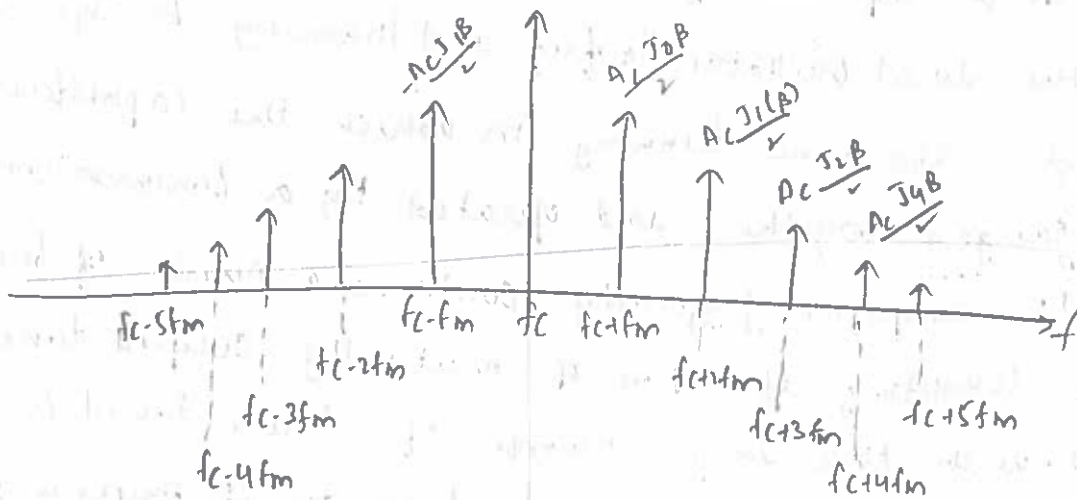 -ACJ1B/2
A1 J0B/2
AC J1(β)/2
AC J2B/2
AC J4B/2
fc-5fm
fc-4fm
fc-3fm
fc-2fm
fc-fm
fc
fc+fm
fc+2fm
fc+3fm
fc+4fm
fc+5fm
f